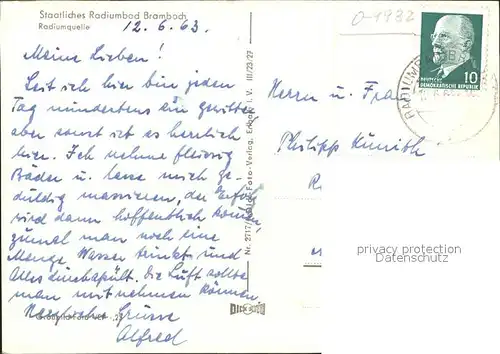 Staatliches Radiumbad Brambach
Radiumquelle
12.6.63.
Meine Lieben!
Seit ich hier bin jeden
Tag mindestens ein Gewitter
aber sonst ist es herrlich
hier. Ich nehme fleissig
Bäder u. lasse mich ge-
duldig massieren, der Erfolg
wird dann hoffentlich kommen,
zumal man noch eine
Menge Wasser trinkt und
Alles durchspült. Die Luft sollte
man mitnehmen können
Herzlichs Grüsse
Alfred
Foto-Verlag, Erlbach i. V. III/23/27
Nr. 2717/
DICK
O-1982
10
DEUTSCHE
DEMOKRATISCHE REPUBLIK
RADIUMBAD
Herrn u. Frau
Philipp
privacy protection
Datenschutz